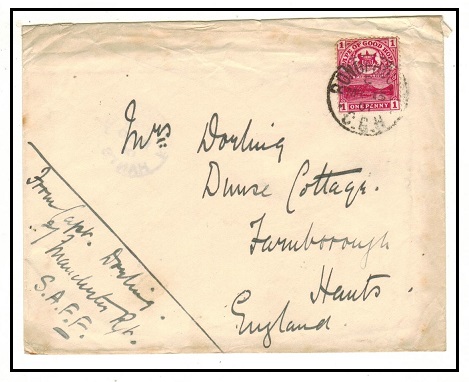 CAPE OF GOOD HOPE
1 1
1 ONE PENNY 1
C.G.H
Mrs Dorling
Dunse Cottage.
Farnborough
Hants.
England.
From Capt. Dorling.
Manchester Rgt.
S.A.F.F.